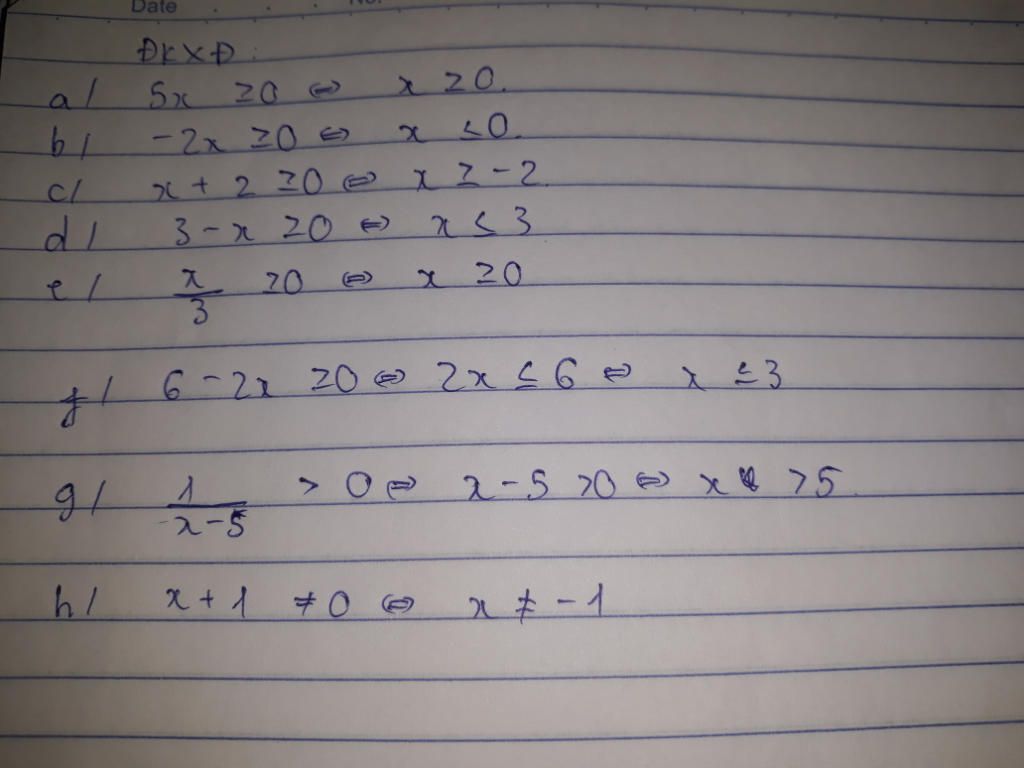 Date No.
ĐKXĐ:
a/ 5x ≥0 ⇔ x ≥0.
b/ -2x ≥0 ⇔ x ≤0.
c/ x + 2 ≥0 ⇔ x ≥ -2.
d/ 3 - x ≥0 ⇔ x ≤ 3
e/ x/3 ≥0 ⇔ x ≥0
f/ 6 - 2x ≥0 ⇔ 2x ≤ 6 ⇔ x ≤3
g/ 1/(x-5) > 0 ⇔ x-5 >0 ⇔ x >5.
h/ x + 1 ≠0 ⇔ x ≠ -1